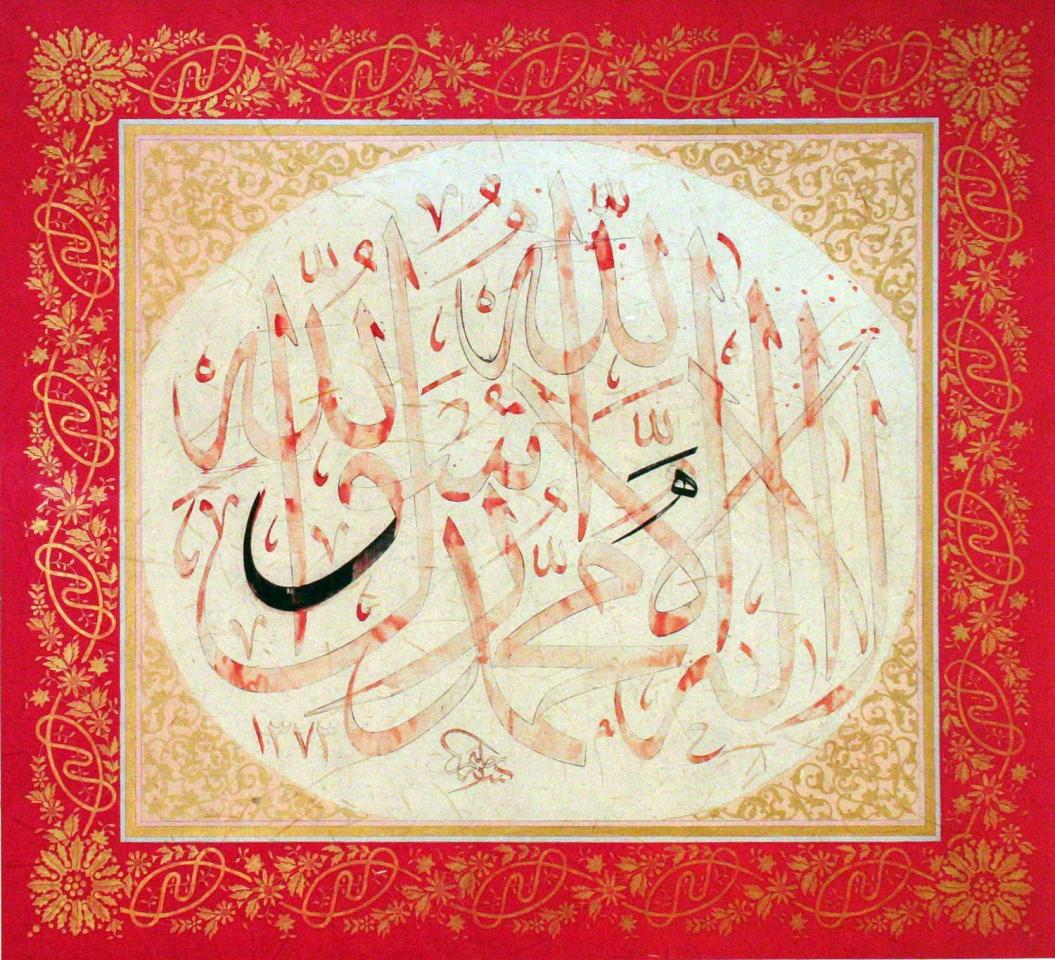 لا إله إلا الله محمد رسول الله
١٣٧٣